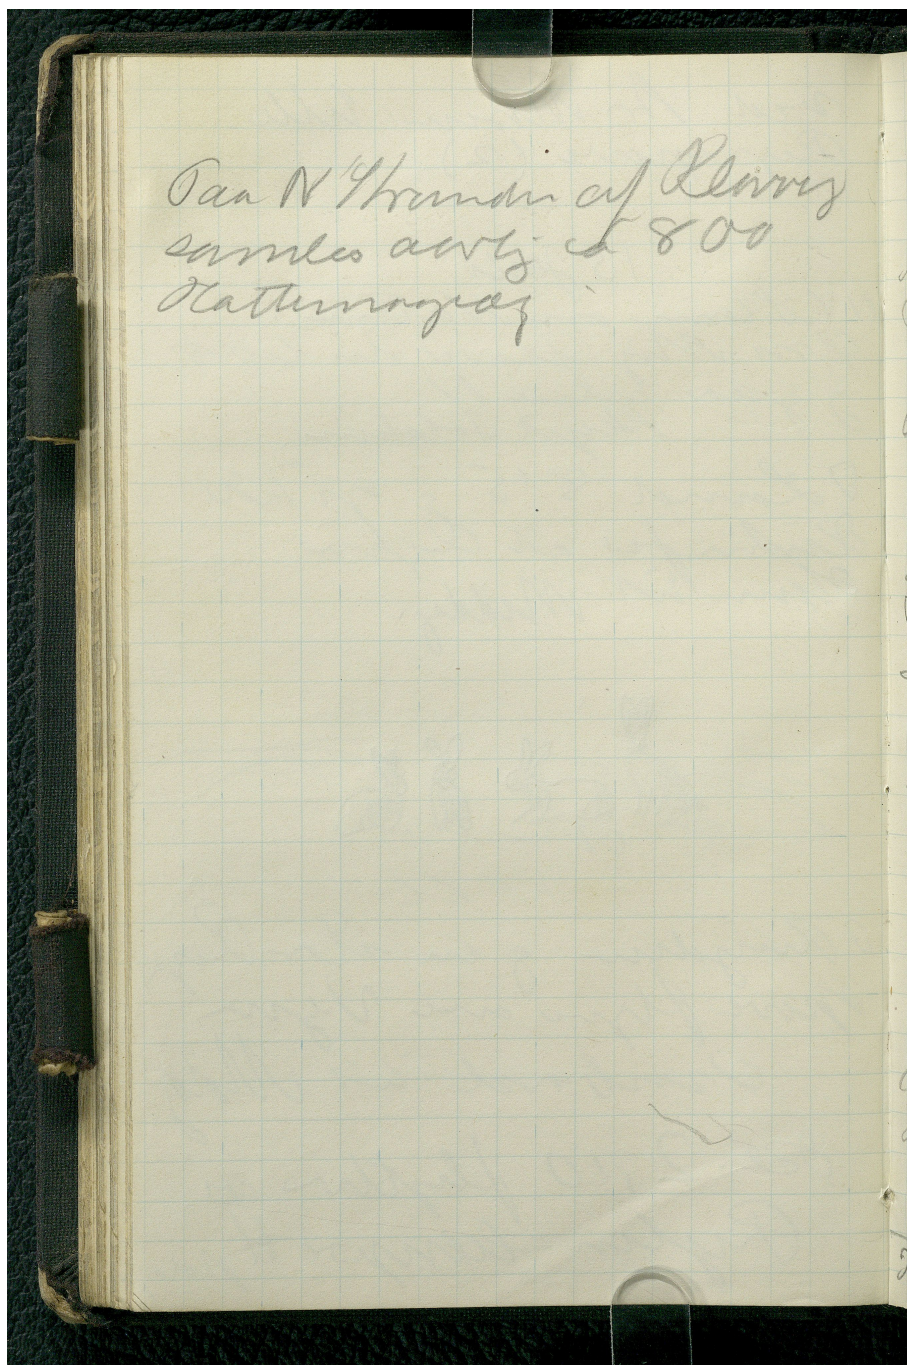 Paa N Stranden af Rløvvig
samles aarlig ca 800
Hattemaageæg